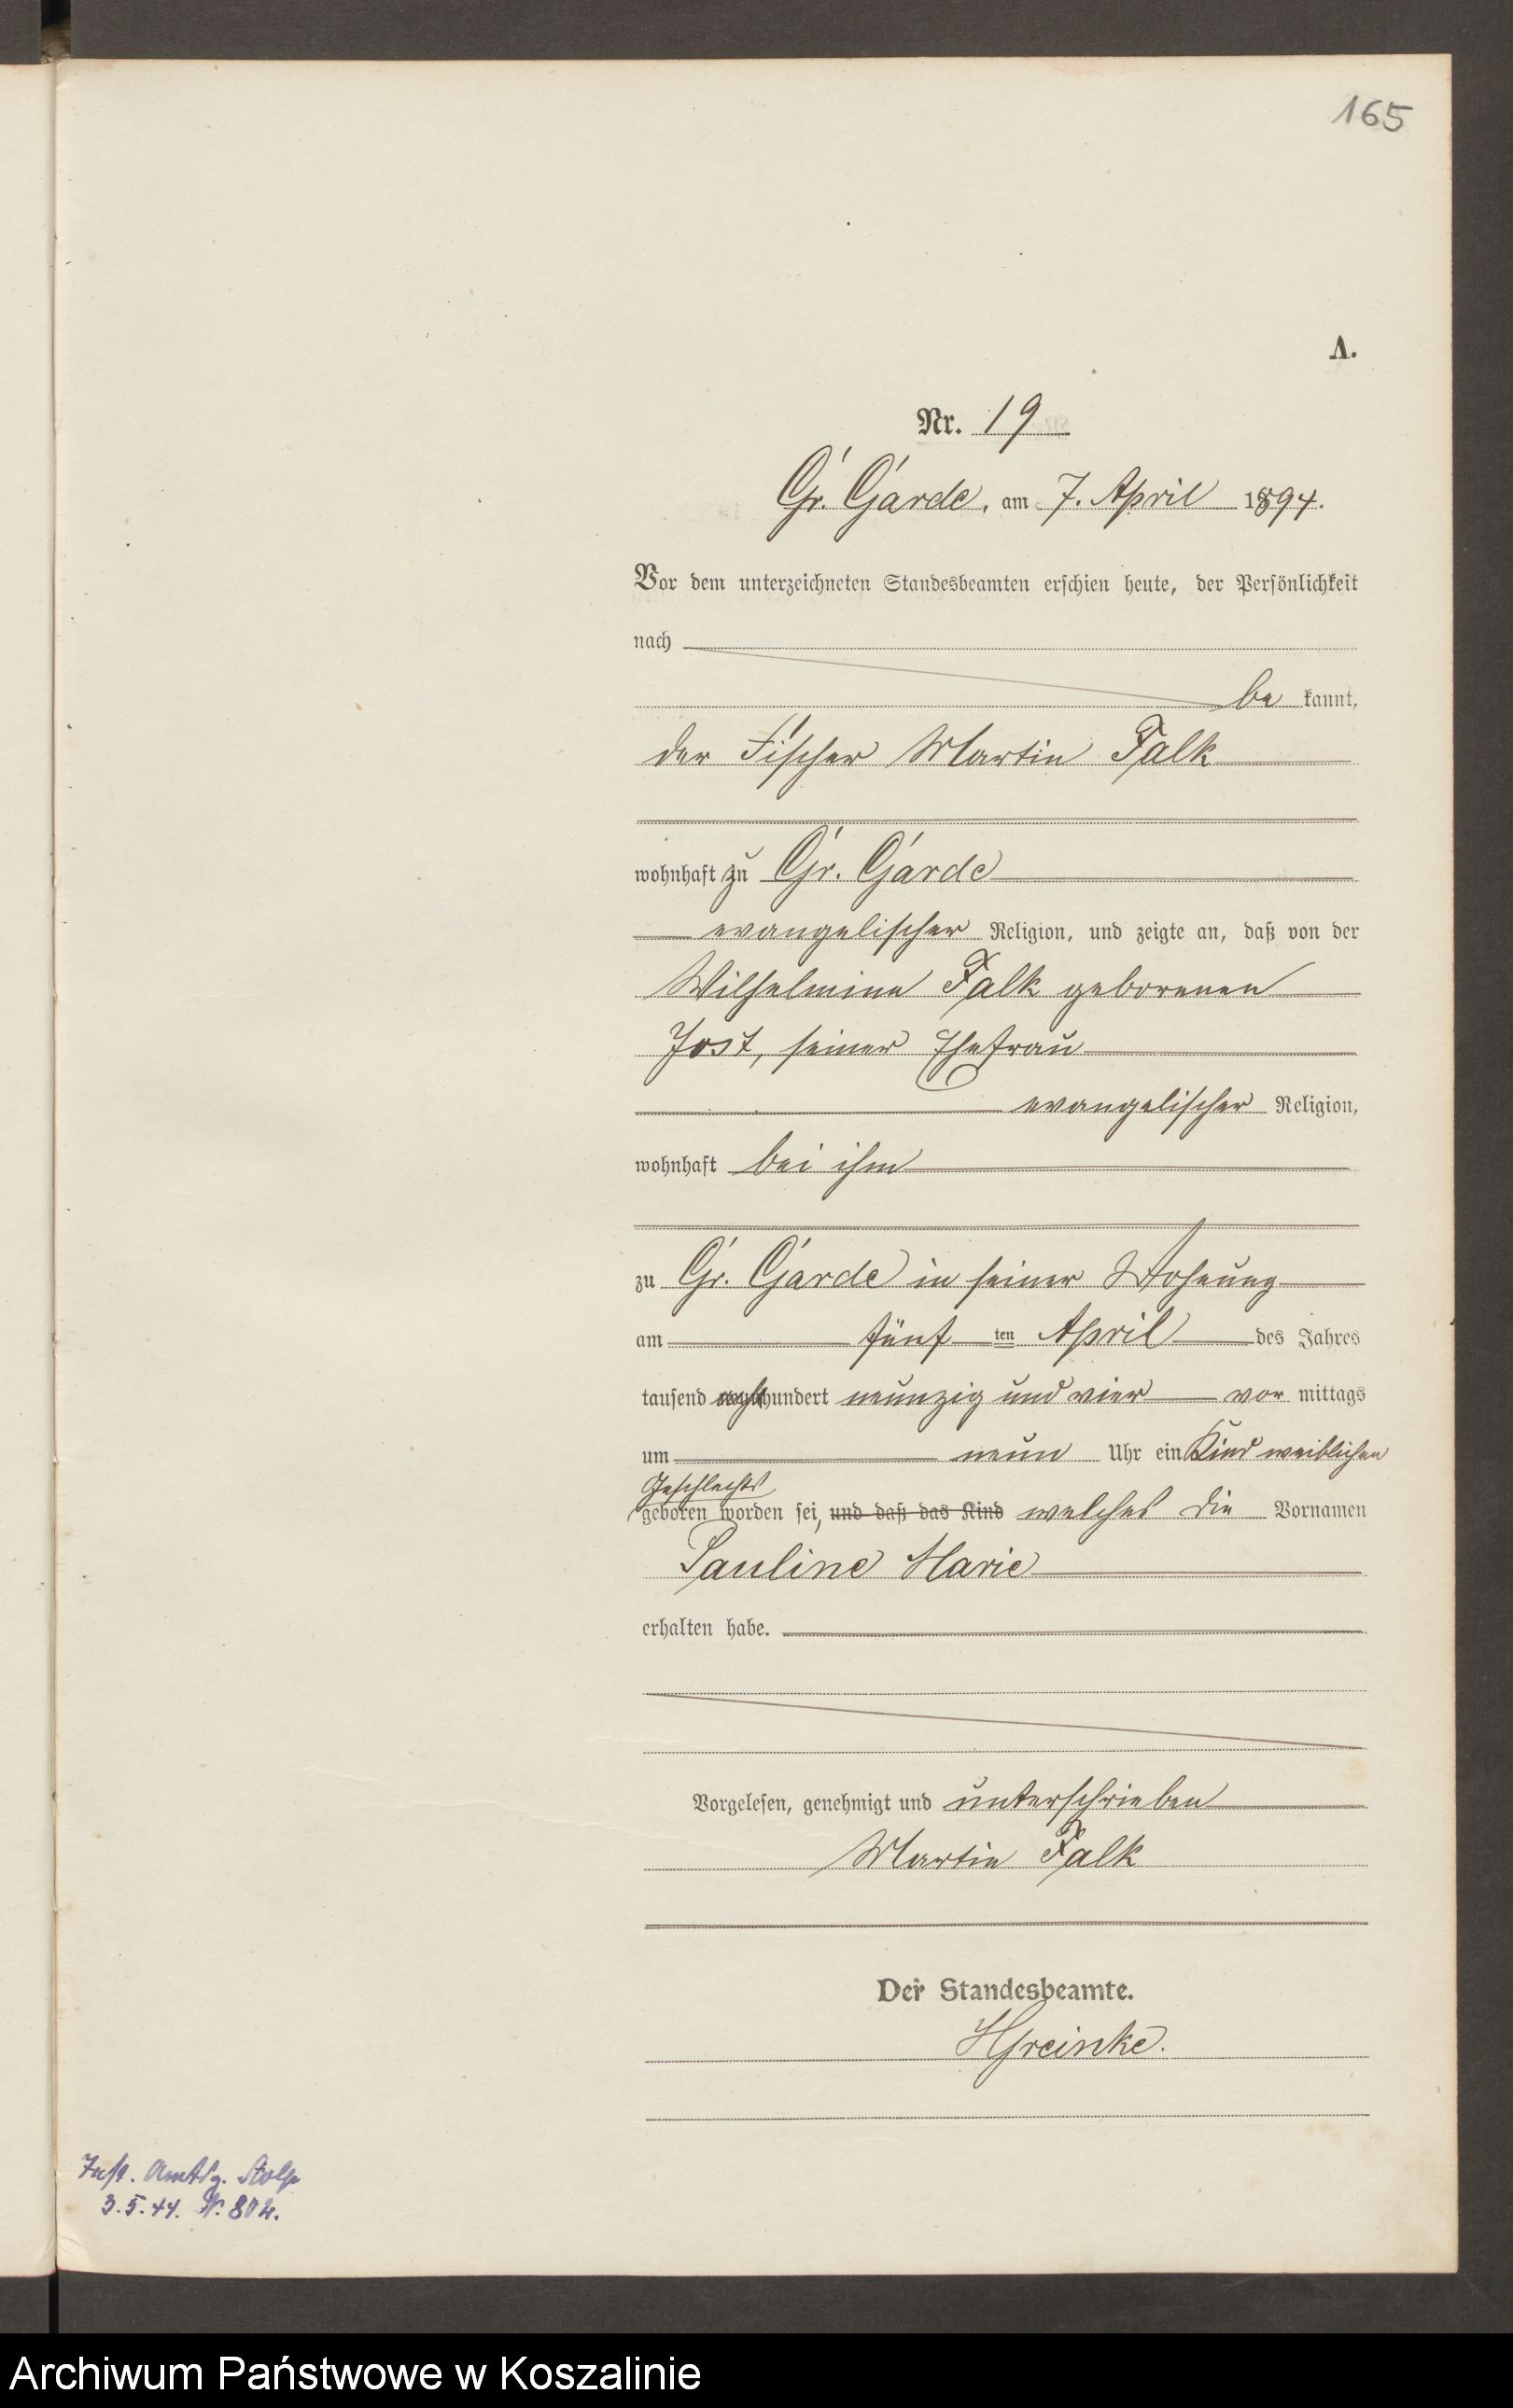 165
A.
Nr. 19
Gr. Garde, am 7. April 1894.
Vor dem unterzeichneten Standesbeamten erschien heute, der Persönlichkeit
nach
be kannt,
der Fischer Martin Falk
wohnhaft zu Gr. Garde
evangelischer Religion, und zeigte an, daß von der
Wilhelmine Falk geborenen
Jost, seiner Ehefrau
evangelischer Religion,
wohnhaft bei ihm
zu Gr. Garde in seiner Wohnung
am fünf ten April des Jahres
tausend acht hundert neunzig und vier vor mittags
um neun Uhr ein Kind weiblichen
Geschlechts
geboren worden sei, und daß das Kind welches die Vornamen
Pauline Marie
erhalten habe.
Vorgelesen, genehmigt und unterschrieben
Martin Falk
Der Standesbeamte.
Amtsg. Stolp
3.5.44. N. 802.
Archiwum Państwowe w Koszalinie